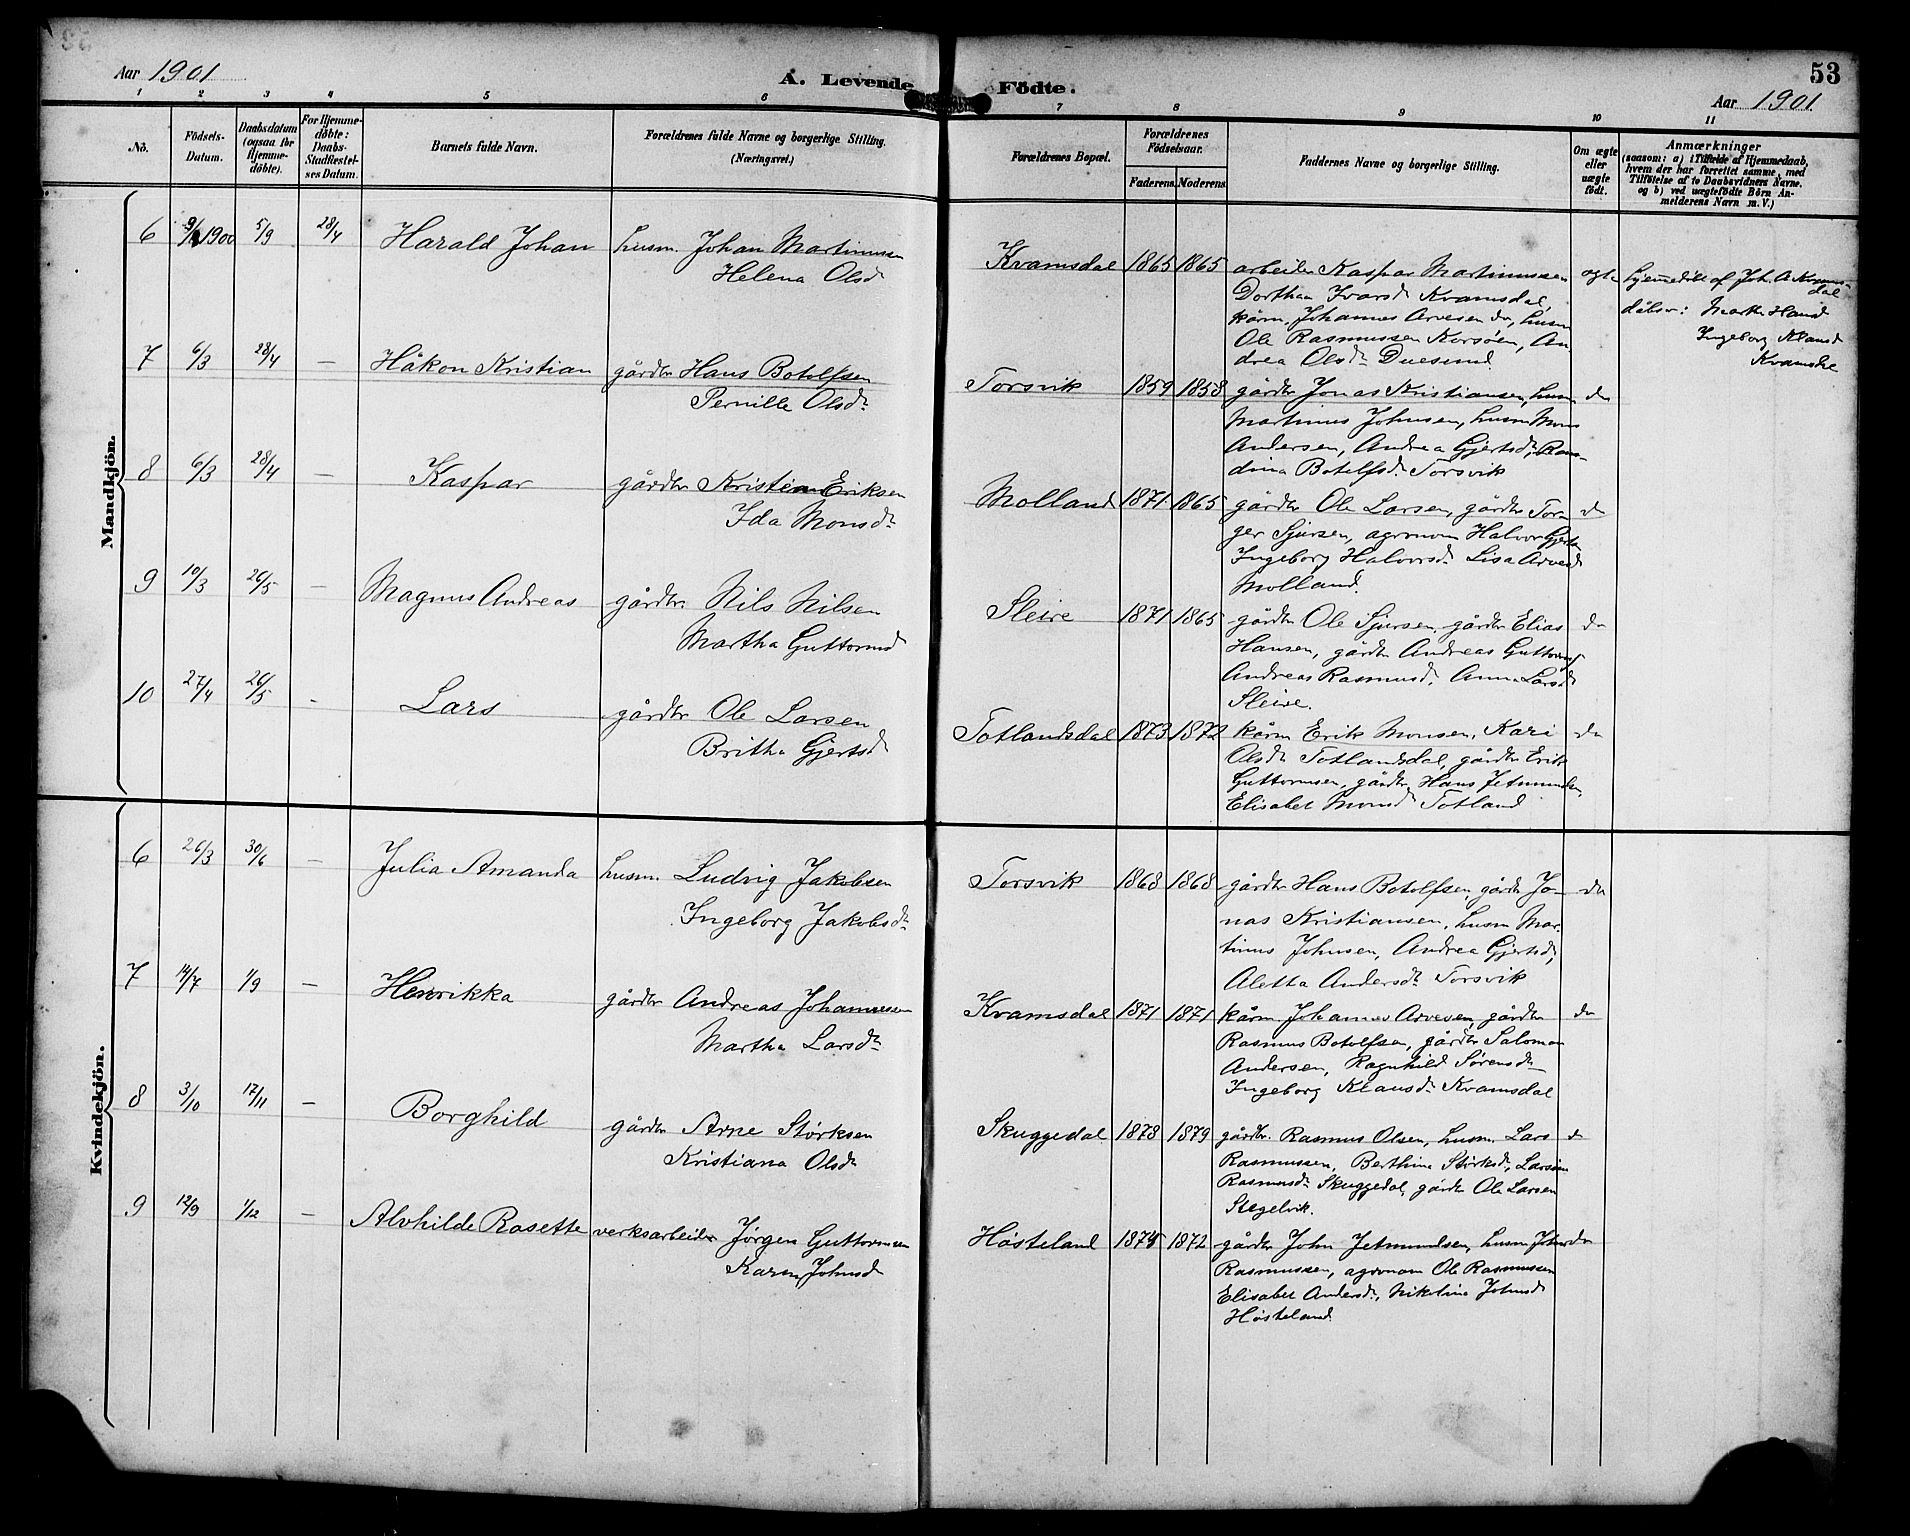 Aar 1901
A. Levende
Födte.
53
Aar 1901.
1 2 3 4 5 6 7 8 9 10 11
No.
Födsels-Datum.
Daabsdatum (ogsaa for Hjemmedöbte).
For Hjemmedöbte: Daabs-Stadfæstelses Datum.
Barnets fulde Navn.
Forældrenes fulde Navne og borgerlige Stilling. (Næringsvei.)
Forældrenes Bopæl.
Forældrenes Födselsaar.
Faderens. Moderens.
Faddernes Navne og borgerlige Stilling.
Om ægte eller uægte födt.
Anmærkninger
(saasom: a) i Tilfælde af Hjemmedaab, hvem der har forrettet samme, med Tilföielse af to Daabsvidners Navne. og b) ved uægtefödte Börn Anmelderens Navn m. V.)
Mandkjön.
6 1900 5/9 28/4 Harald Johan husm. Johan Martinussen
Helena Olsd
Kvamsdal 1865 1865 arbeider Kaspar Martinussen
Dorthea Ivarsd Kvamsdal,
kårm. Johannes Arvesen do, husm
Ole Rasmussen Korsøen, An-
drea Olsdr Duesund
ægte
hjemmedöbt af Joh. A Kvams-
dal
dåbsv: Marthe Hansd
Ingeborg Klausd
7 6/3 28/4 — Håkon Kristian gårdbr Hans Botolfsen
Pernille Olsdr
Torsvik 1859 1858 gårdbr Jonas Kristiansen, husm
Martinus Johnsen, husm Mons
Andersen, Andrea Gjertsd, Ran-
dina Botolfsd. Torsvik
do
8 6/3 28/4 — Kaspar gårdbr Kristian Eriksen
Ida Monsdr
Molland 1871 1865 gårdbr Ole Larsen, gårdbr Tor-
ger Sjursen, agronom Halvor Gjertsen
Ingeborg Halvorsd. Lisa Arvesd
Molland.
do
9 10/3 26/5 — Magnus Andreas gårdbr. Nils Nilsen
Martha Guttormsd
Sleire 1871 1865 gårdbr Ole Sjursen, gårdbr Elias
Hansen, gårdbr Andreas Guttormsen
Andreas Rasmusd, Anna Larsd
Sleire.
do
10 27/4 26/5 - Lars gårdbr Ole Larsen
Britha Gjertsd
Totlandsdal 1873 1872 kårm Erik Monsen, Kari
Olsdr Totlandsdal, gårdbr Erik
Guttormsen, gårdbr Hans Jetmundsen,
Elisabet Monsd Totland
do
Kvindekjön.
6 26/3 30/6 — Julia Amanda husm. Ludvig Jakobsen
Ingeborg Jakobsdr
Torsvik 1868 1868 gårdbr Hans Botolfsen, gårdbr Jo-
nas Kristiansen, husm Mar-
tinus Johnsen, Andrea Gjertsd,
Aletta Andersdr Torsvik
do
7 14/7 1/9 — Henrikka gårdbr Andreas Johannessen
Martha Larsdr
Kvamsdal 1871 1871 kårm Johannes Arvesen, gårdbr
Rasmus Botolfsen, gårdbr Salomon
Andersen, Ragnhild Sørensdr
Ingeborg Klausdr Kvamsdal
do
8 3/10 17/11 — Borghild gårdbr Arne Størksen
Kristiana Olsdr
Skuggedal 1878 1879 gårdbr. Rasmus Olsen, husm. Lars
Rasmussen, Berthine Størksd,
Rasmusdr Skuggedal, gårdbr Ole Larsen
do
9 12/9 1/12 — Alvhilde Rosette verksarbeider Jørgen Guttormsen
Karen Johnsd
Høsteland 1874 1872 gårdbr John Jetmundsen, husm John
Rasmussen, agronom Ole Rasmussen
Elisabet Andersdr, Nikoline Johnsd
Høsteland
do